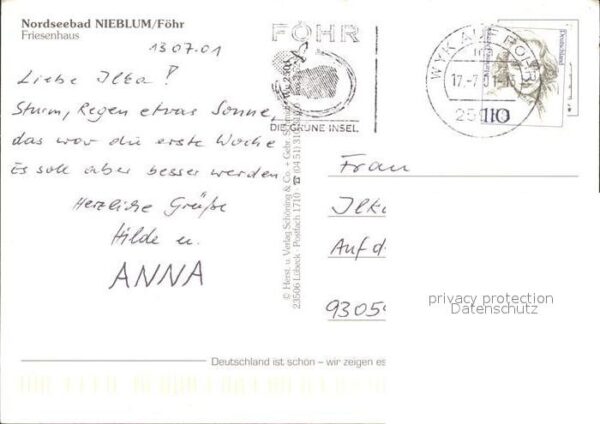 Nordseebad NIEBLUM/Föhr
Friesenhaus
13 07. 01
Liebe Ilka!
Sturm, Regen etwas Sonne,
das war die erste Woche
Es soll aber besser werden
Herzliche Grüße
Hilde u.
ANNA
FÖHR
DIE GRÜNE INSEL
WYK AUF FÖHR
17.-7.01-15
25938
110
Deutschland
© Herst. u. Verlag Schöning & Co. + Gebr. Schmidt
23506 Lübeck · Postfach 1710 · ☎ (04 51) 310
Frau
Ilka
Auf d
9305
privacy protection
Datenschutz
Deutschland ist schön – wir zeigen es